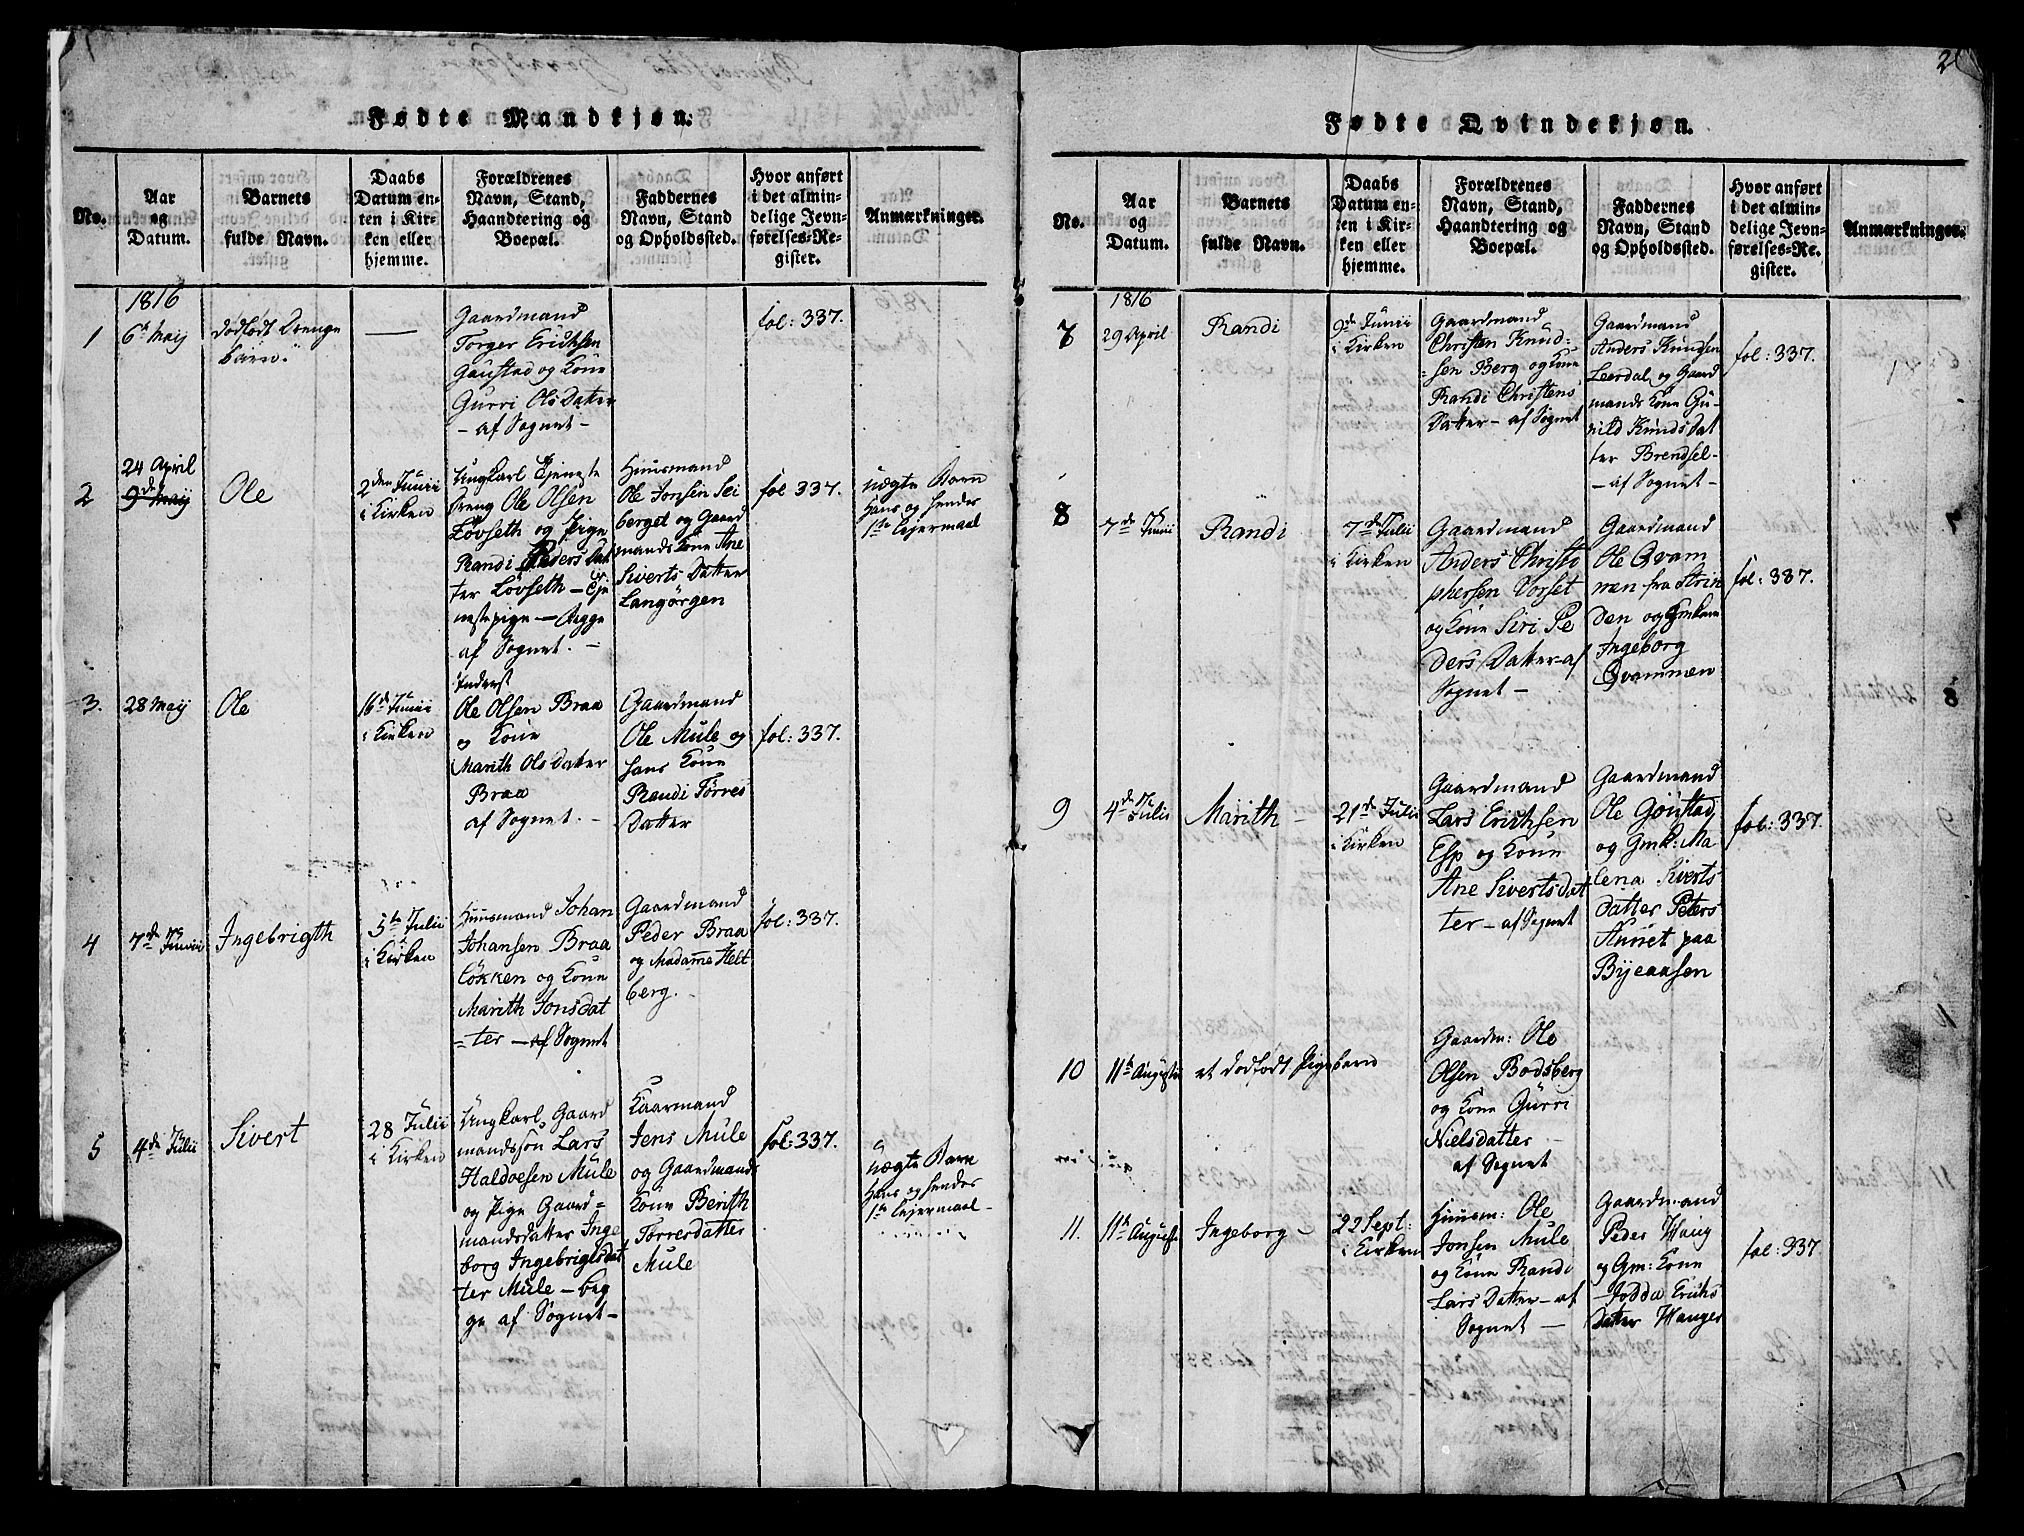 Fødte Mandkjøn.
No.
Aar
og
Datum.
Barnets
fulde Navn.
Daabs
Datum en-
ten i Kir-
ken eller
hjemme.
Forældrenes
Navn, Stand,
Haandtering og
Boepæl.
Faddernes
Navn, Stand
og Opholdssted.
Hvor anført
i det almin-
delige Jevn-
førelses-Re-
gister.
Anmærkninger.
1
1816
6te Maij
dødfødt Drenge
barn.
Gaardmand
Torger Erichsen
Gaustad og Kone
Gurri OlsDatter
- af Sognet -
fol: 337.
2
24 April
9de Maij
Ole
2den Junii
i Kirken
Ungkarl Tjeneste
dreng Ole Olsen
Løvseth og Pige
Randi PedersDat
ter Løvseth - Tje
nestepige - Begge
af Sognet. -
Huusmand
Ole Jonsen Sei
berget og Gaard
mandsKone Ane
SivertsDatter
Langørgen
fol 337.
uægte Barn
Hans og hendes
1ste Lejermaal
3.
28 Maij
Ole
16de Junii
i Kirken
Inderst
Ole Olsen Braa
og Kone
Marith OlsDatter
Braa
af Sognet. -
Gaardmand
Ole Mule og
hans Kone
Randi Tørres
Datter
fol: 337.
4
7de Junii
Ingebrigth
5te Julii
i Kirken
Huusmand Johan
Johansen Braa
løkken og Kone
Marith Jonsdat
=ter - af Sognet
Gaardmand
Peder Braa
og Madamme Helt
berg.
fol: 337.
5
4de Julii
Sivert
28 Julii
i Kirken
Ungkarl Gaard
mandssøn Lars
Haldoesen Mule
og Pige Gaard=
mandsdatter Inge
borg Ingebrigtsdat
ter Mule - beg
ge af Sognet -
Kaarmand
Jens Mule
og Gaardmands
Kone Berith
Torresdatter
Mule
fol: 337.
uægte Barn
Hans og hendes
1ste Lejermaal -
2
Fødte Qvindekjøn.
No.
Aar
og
Datum.
Barnets
fulde Navn.
Daabs
Datum en-
ten i Kir-
ken eller
hjemme.
Forældrenes
Navn, Stand,
Haandtering og
Boepæl.
Faddernes
Navn, Stand
og Opholdssted.
Hvor anført
i det almin-
delige Jevn-
førelses-Re-
gister.
Anmærkninger.
7
1816
29 April
Randi
9de Junii
i Kirken
Gaardmand
Christen Knud-
=sen Berg og Kone
Randi Christens
Datter - af Sognet
Gaardmand
Anders Knudsen
Leerdal og Gaard
mands Kone Gu-
nild KnudsDat
ter Brendsel-
- af Sognet -
fol: 337.
8
7de Junii
Randi
7de Julii
i Kirken
Gaardmand
Anders Christo
phersen Vorset
og Kone Siri Pe
dersDatter - af
Sognet -
Gaardmand
Ole Qvam
men fra Strin
den og Gmkone
Ingeborg
Qvammen
fol: 337.
9
4de Julii
Marith -
21de Julii
i Kirken
Gaardmand
Lars Erichsen
Esp og Kone
Ane Sivertsdat
ter - af Sognet
Gaardmand
Ole Gøustad
og Gmk: Ma
lena Siverts
datter Peters
Annet paa
Byeaasen
fol: 337.
10
11te Augustii
et dødfødt Pigebarn
Gaardm: Ole
Olsen Bodsberg
og Kone Gurri
Nielsdatter -
af Sognet
11.
11te August
Ingeborg -
22 Sept:
i Kirken
Huusm: Ole
Jonsen Mule
og Kone Randi
LarsDatter - af
Sognet -
Gaardmand
Peder Haug
og Gm: Kone
Jodda Erichs
Datter Hauger
fol: 337